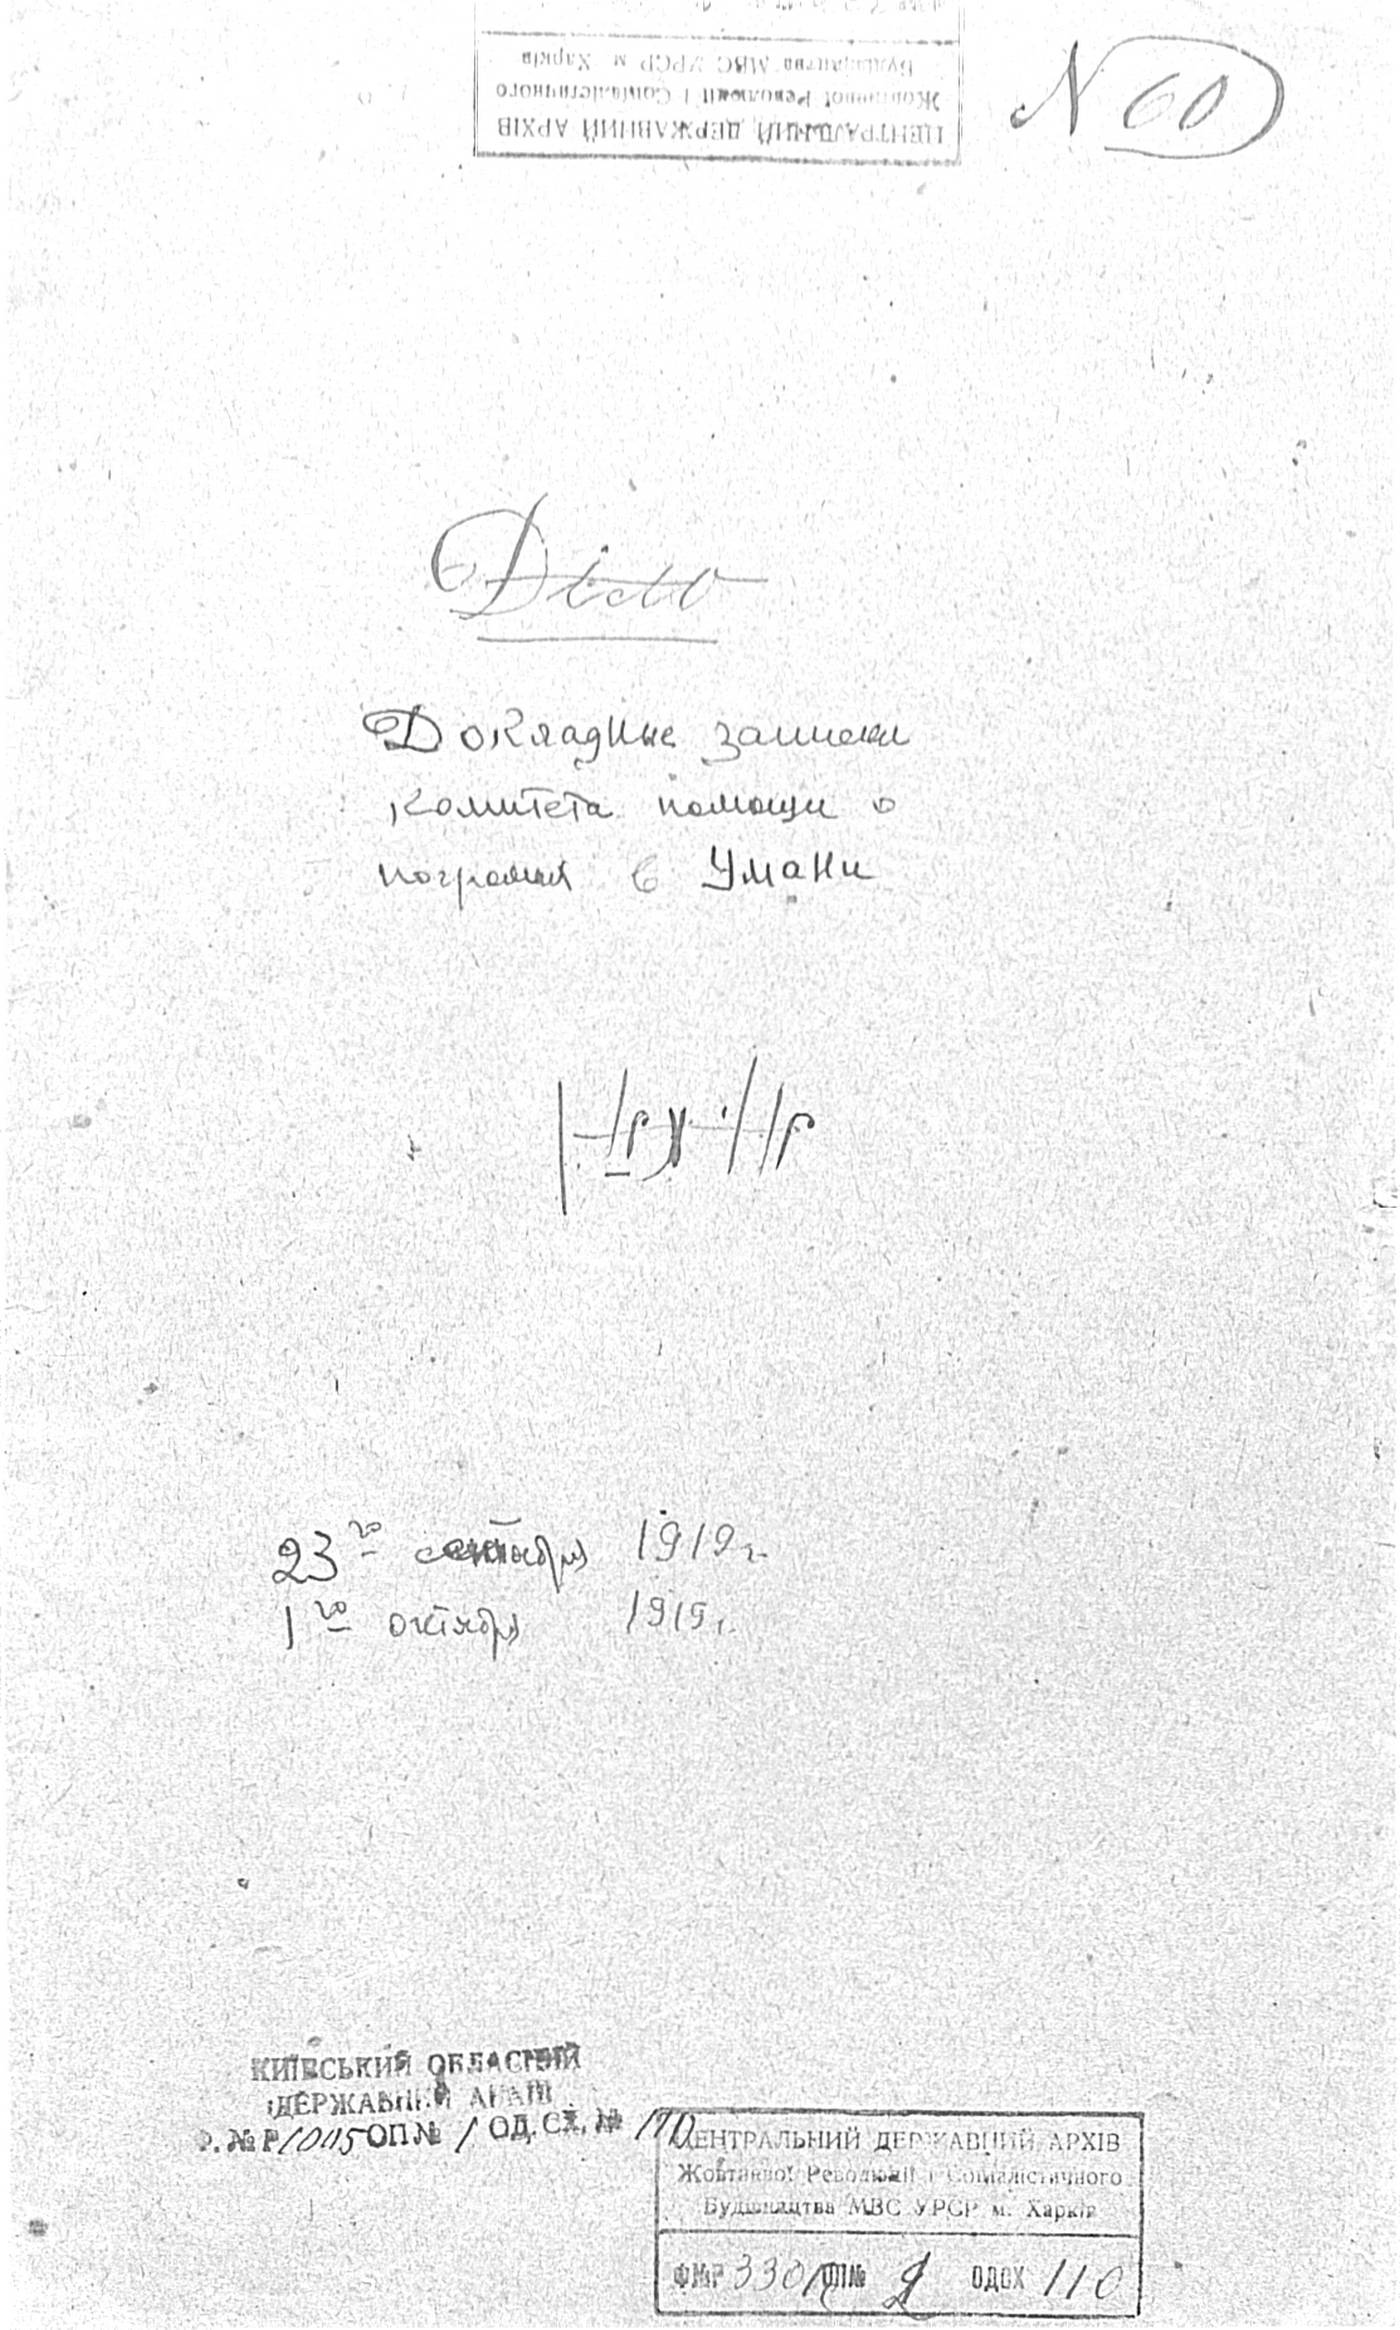 ЦЕНТРАЛЬНИЙ ДЕРЖАВНИЙ АРХІВ
Жовтневої Революції і Соціалістичного
Будівництва МВС УРСР м. Харків
N 60
Дѣло
Докладные записки
комитета помощи о
погромах в Умани
23го сентября 1919 г.
1го октября 1919 г.
КИЇВСЬКИЙ ОБЛАСНИЙ
ДЕРЖАВНИЙ АРХІВ
Ф. № Р 1005 ОП № 1 ОД. СХ. № 110
ЦЕНТРАЛЬНИЙ ДЕРЖАВНИЙ АРХІВ
Жовтневої Революції і Соціалістичного
Будівництва МВС УРСР м. Харків
Ф№Р 3301 ОП№ 2 ОДСХ 110